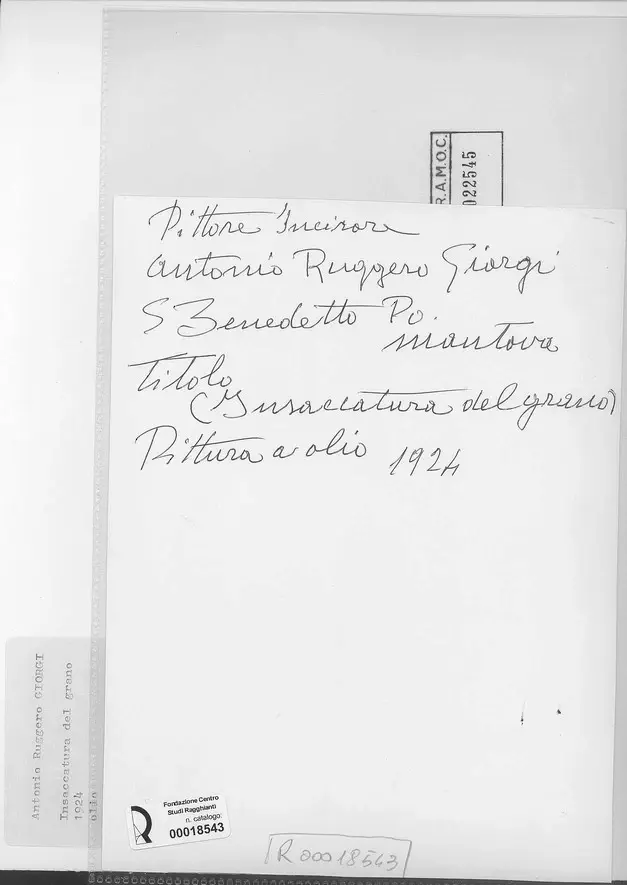 R.A.M.O.C.
022545
Pittore Incisore
Antonio Ruggero Giorgi
S Benedetto Po.
Mantova
Titolo
(Insaccatura del grano)
Pittura a olio 1924
Antonio Ruggero GIORGI
Insaccatura del grano
1924
olio
Fondazione Centro
Studi Ragghianti
n. catalogo:
00018543
R 00018543